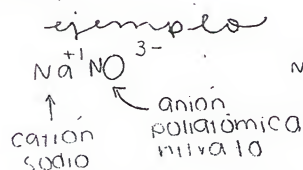 ejemplo
Na⁺¹NO³⁻ N
catión
sodio
anión
poliatómica
nitrato